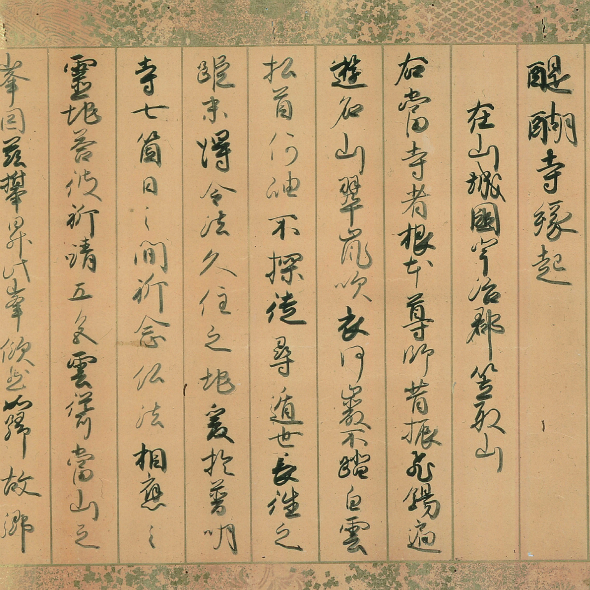 醍醐寺縁起
在山城國宇治郡笠取山
右當寺者根本尊師昔振飛錫遍
遊名山翠嵐吹衣何巖不踏白雲
払首何岫不探徒尋遁世長往之
蹤未得令法久住之地爰於普明
寺七箇日之間祈念仏法相應之
靈地答彼祈請五色雲聳當山之
峯因茲攀昇此峯欣然如歸故郷